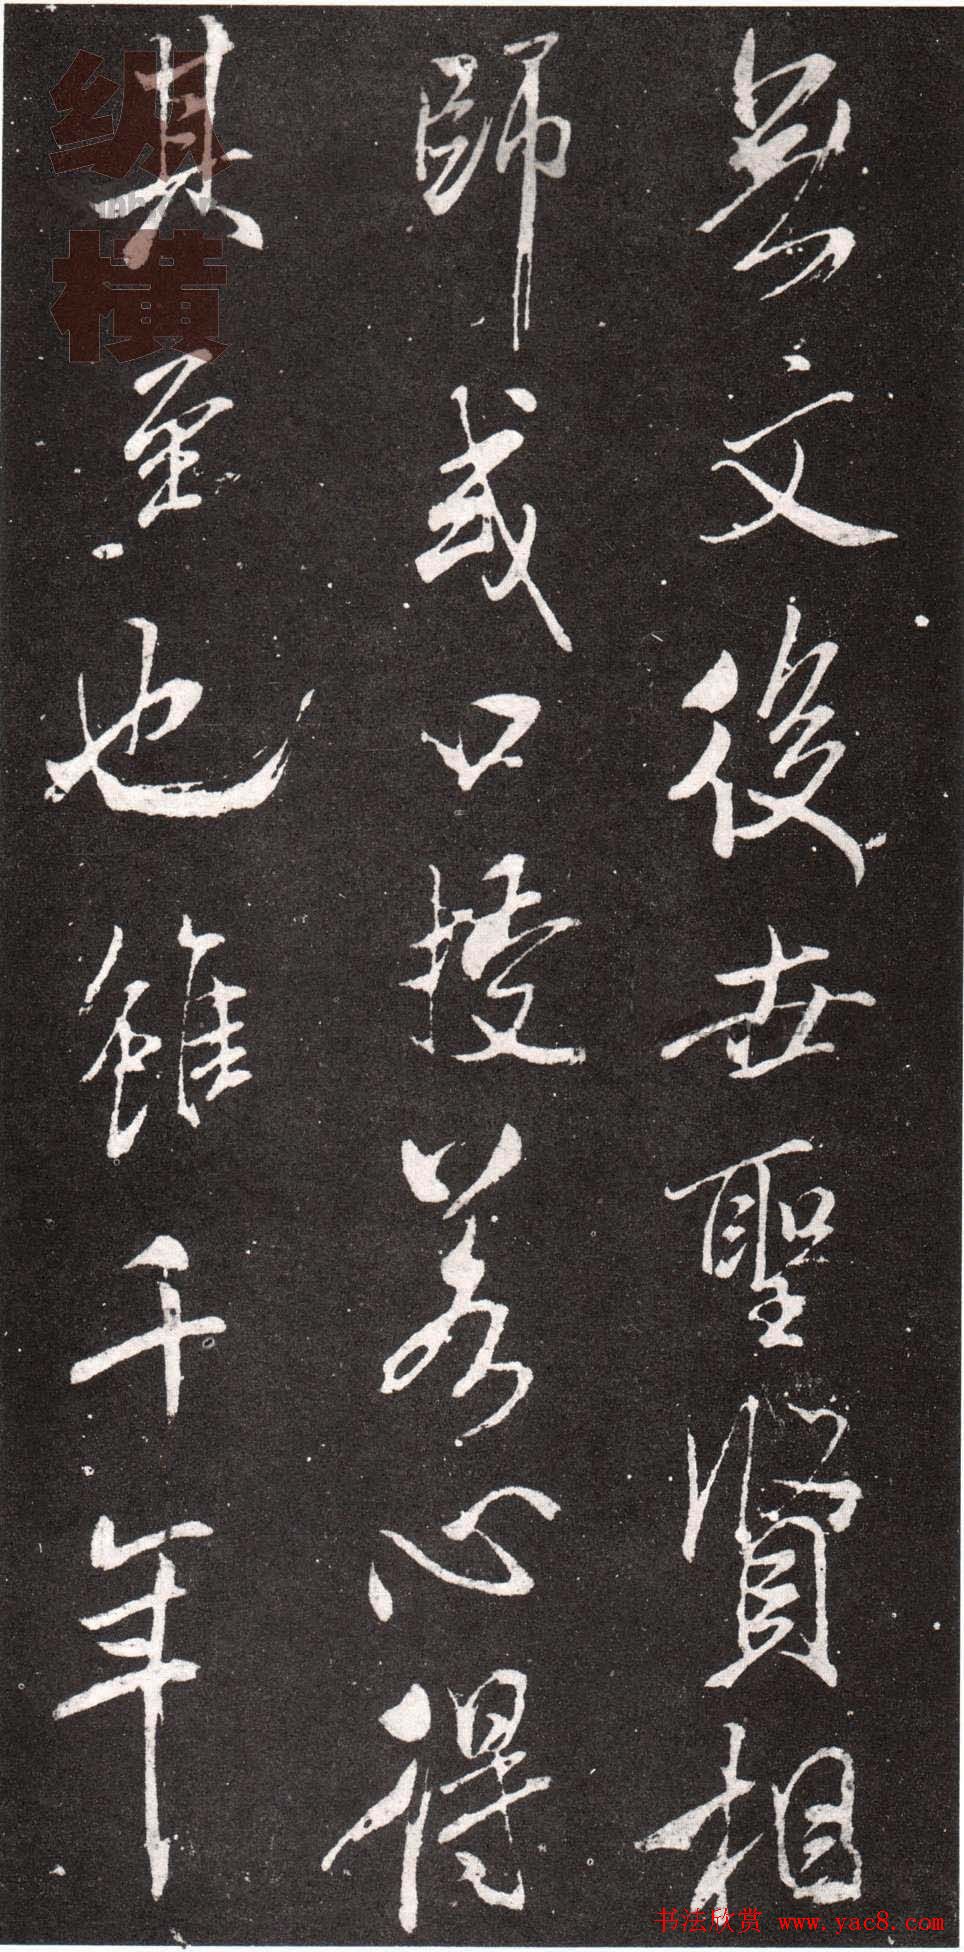 文後世聖賢相
師或口授若心得
其至也雖千年
横
书法欣赏 www.yac8.com